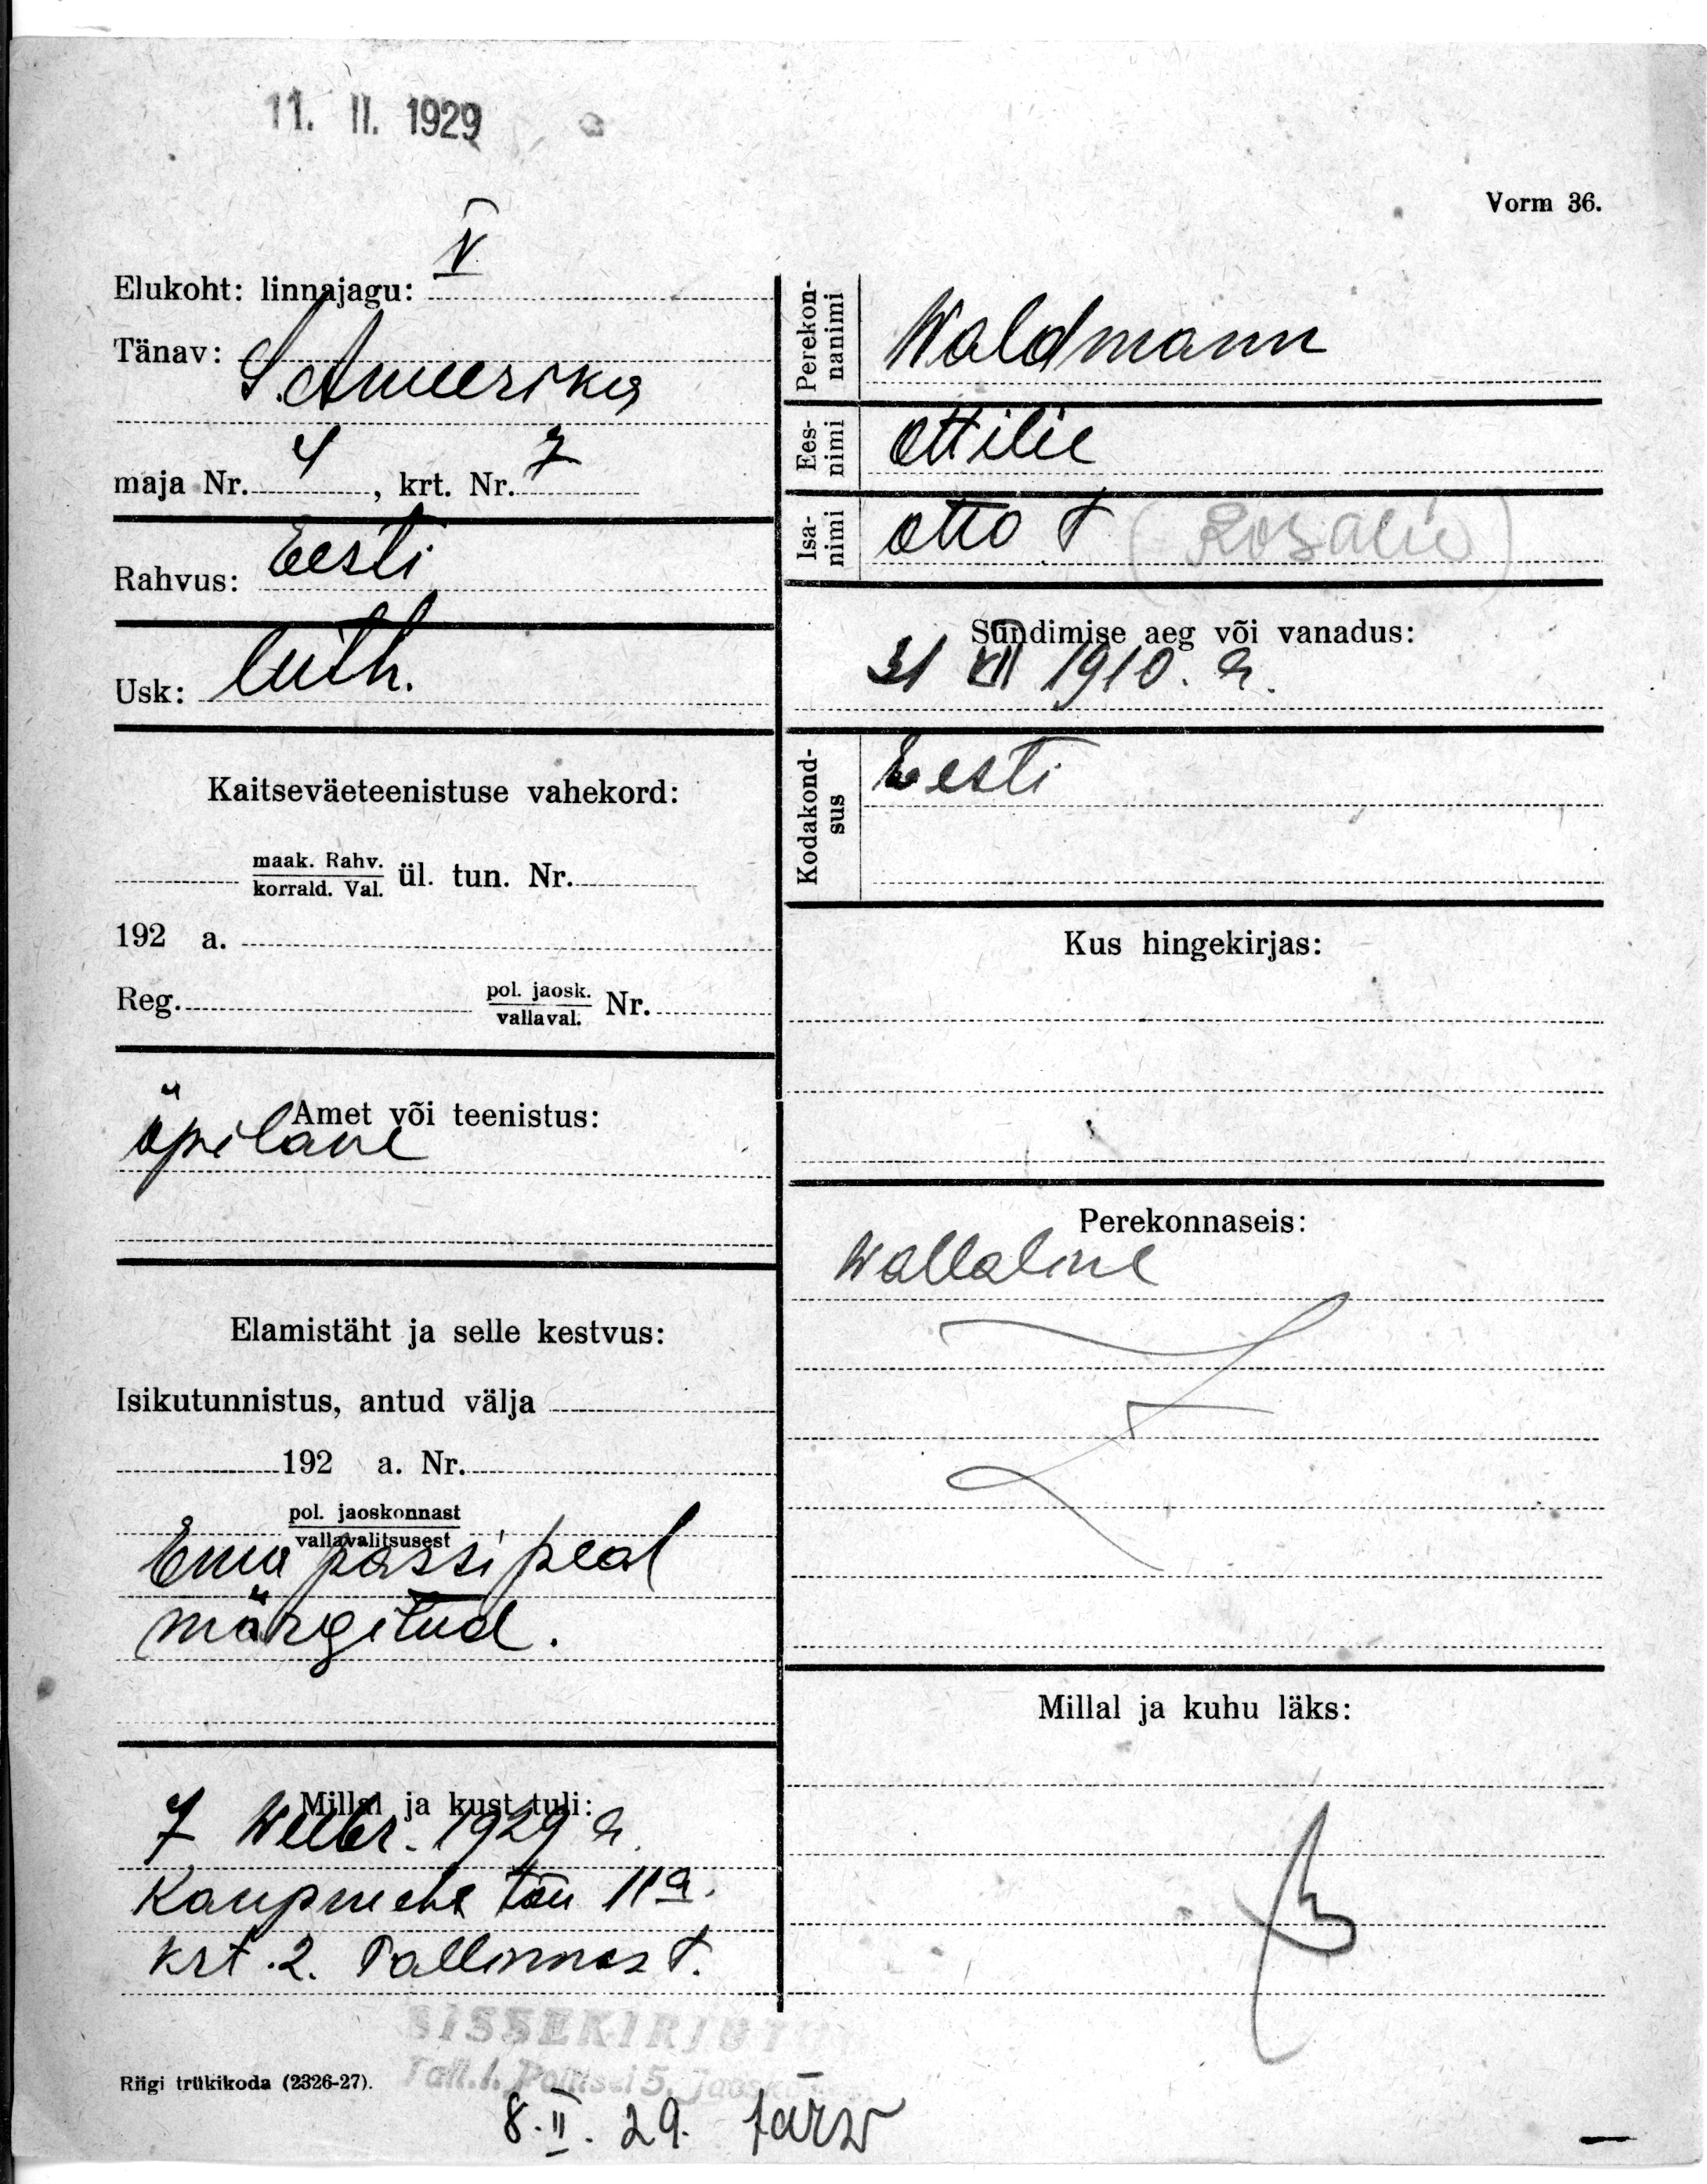 11. II. 1929
Vorm 36.
Elukoht: linnajagu: V
Tänav: S. Ameerika
maja Nr. 4, krt. Nr. 7
Rahvus: Eesti
Usk: luth.
Kaitseväeteenistuse vahekord:
maak. Rahv.
korrald. Val. ül. tun. Nr.
192 a.
Reg. pol. jaosk.
vallaval. Nr.
Amet või teenistus:
õpilane
Elamistäht ja selle kestvus:
Isikutunnistus, antud välja
192 a. Nr.
pol. jaoskonnast
vallavalitsusest
Ema passi peal
märgitud.
Millal ja kust tuli:
7 Weebr. 1929 a.
Kaupmehe tän 11a.
krt. 2. Tallinnast.
Perekon-
nanimi
Waldmann
Ees-
nimi
Ottilie
Isa-
nimi
Otto t (Rosalie)
Sündimise aeg või vanadus:
31 XII 1910. a.
Kodakond-
sus
Eesti
Kus hingekirjas:
Perekonnaseis:
Wallaline
Millal ja kuhu läks:
SISSEKIRJUTU
Tall. l. Politsei 5. jaosk
Riigi trükikoda (2326-27).
8. II. 29. Järw